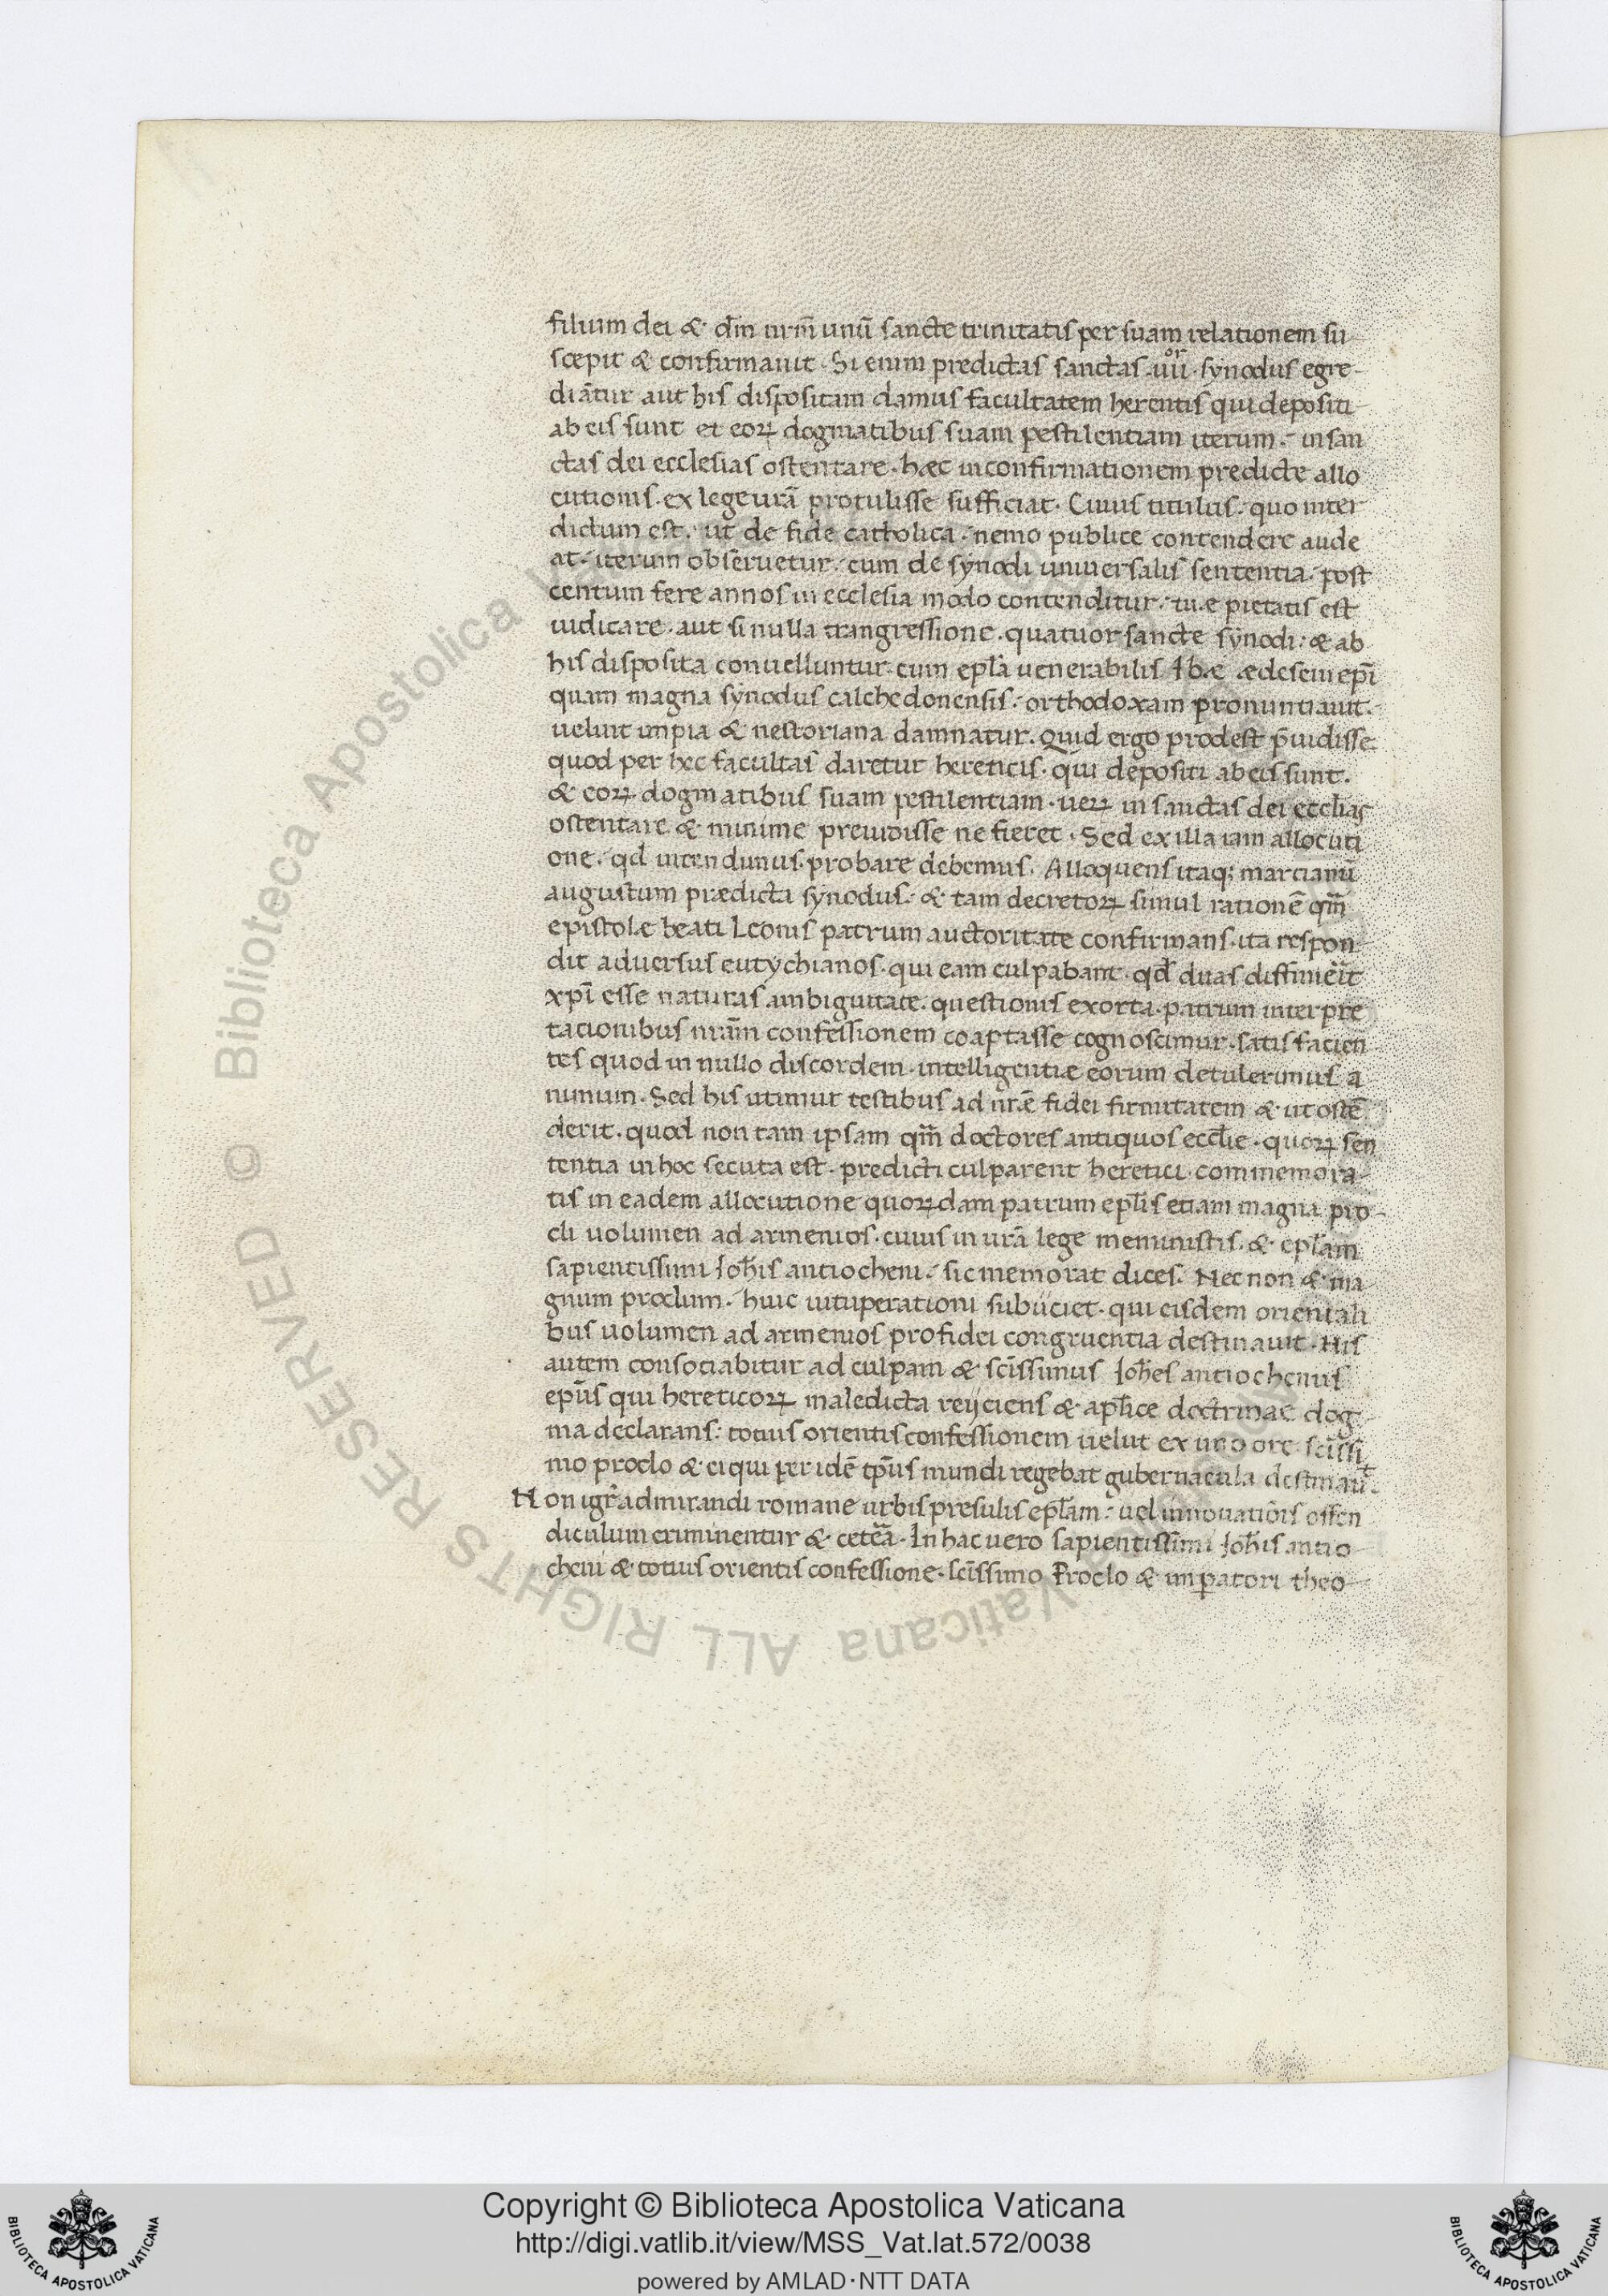 filium dei & dn̄m nrm̄ unū sancte trinitatis per suam relationem su
scepit & confirmauit. Si enim predictas sanctas .iiii.or synodus egre-
diātur aut his dispositam damus facultatem herentis qui depositi
ab eis sunt et eoꝝ dogmatibus suam pestilentiam iterum. in san
ctas dei ecclesias ostentare. hæc in confirmationem predicte allo
cutionis. ex lege urā protulisse sufficiat. Cuius titulus. quo inter
dictum est. ut de fide catholica. nemo publice contendere aude
at. iterum obseruetur. cum de synodi uniuersalis sententia. post
centum fere annos in ecclesia modo contenditur. tu.e pietatis est
iudicare. aut si nulla trangressione. quatuor sancte synodi: & ab
his disposita conuelluntur. cum epl̄a uenerabilis Ibæ ædesem epī
quam magna synodus calchedonensis. orthodoxam pronuntiauit.
uelut impia & nestoriana damnatur. Quid ergo prodest p̄uidisse
quod per hec facultas daretur hereticis. qui depositi ab eis sunt.
& eoꝝ dogmatibus suam pestilentiam. ueꝝ in sanctas dei eccl̄ias
ostentare & minime preuidisse ne fieret. Sed ex illa iam allocuti
one. qd intendimus. probare debemus. Alloquens itaq; marcianū
augustum prædicta synodus. & tam decretoꝝ simul rationē qm̄
epistole beati Leonis patrum auctoritate confirmans. ita respon-
dit aduersus eutychianos. qui eam culpabant. qd̄ duas diffinierit
xpī esse naturas ambiguitate. questionis exorta. patrum interpre
tationibus nrām confessionem coaptasse cognoscimur. satis facien
tes quod in nullo discordem. intelligentiæ eorum detulerimus a
nimum. Sed his utimur testibus ad nrē fidei firmitatem & ut ostē
derit. quod non tam ipsam qm̄ doctores antiquos eccl̄ie. quoꝝ sen
tentia in hoc secuta est. predicti culparent heretici. commemora-
tis in eadem allocutione quoꝝdam patrum epl̄is etiam magni pro-
cli uolumen ad armenios. cuius in urā lege meministis. & epl̄am
sapientissimi Ioh̄is antiocheni. sic memorat dices. Nec non & ma
gnum proclum. huic uituperationi subiiciet. qui eisdem orientali
bus uolumen ad armenios pro fidei congruentia destinauit. His
autem consociabitur ad culpam & scīssimus Ioh̄es antiochenus
epūs qui hereticoꝝ maledicta reijciens & apl̄ice doctrinae dog-
ma declarans: totius orientis confessionem uelut ex uno ore scīssi
mo proclo & ei qui per idē tp̄us mundi regebat gubernacula destinauit.
Non igr̄ admirandi romane urbis presulis epl̄am: uel innouatiōis offen
diculum criminentur & cetera. In hac uero sapientissimi Ioh̄is antio-
cheni & totius orientis confessione. scīssimo Proclo & imperatori theo-
© Biblioteca Apostolica Vaticana ALL RIGHTS RESERVED
Copyright © Biblioteca Apostolica Vaticana
http://digi.vatlib.it/view/MSS_Vat.lat.572/0038
powered by AMLAD·NTT DATA
BIBLIOTECA APOSTOLICA VATICANA
BIBLIOTECA APOSTOLICA VATICANA